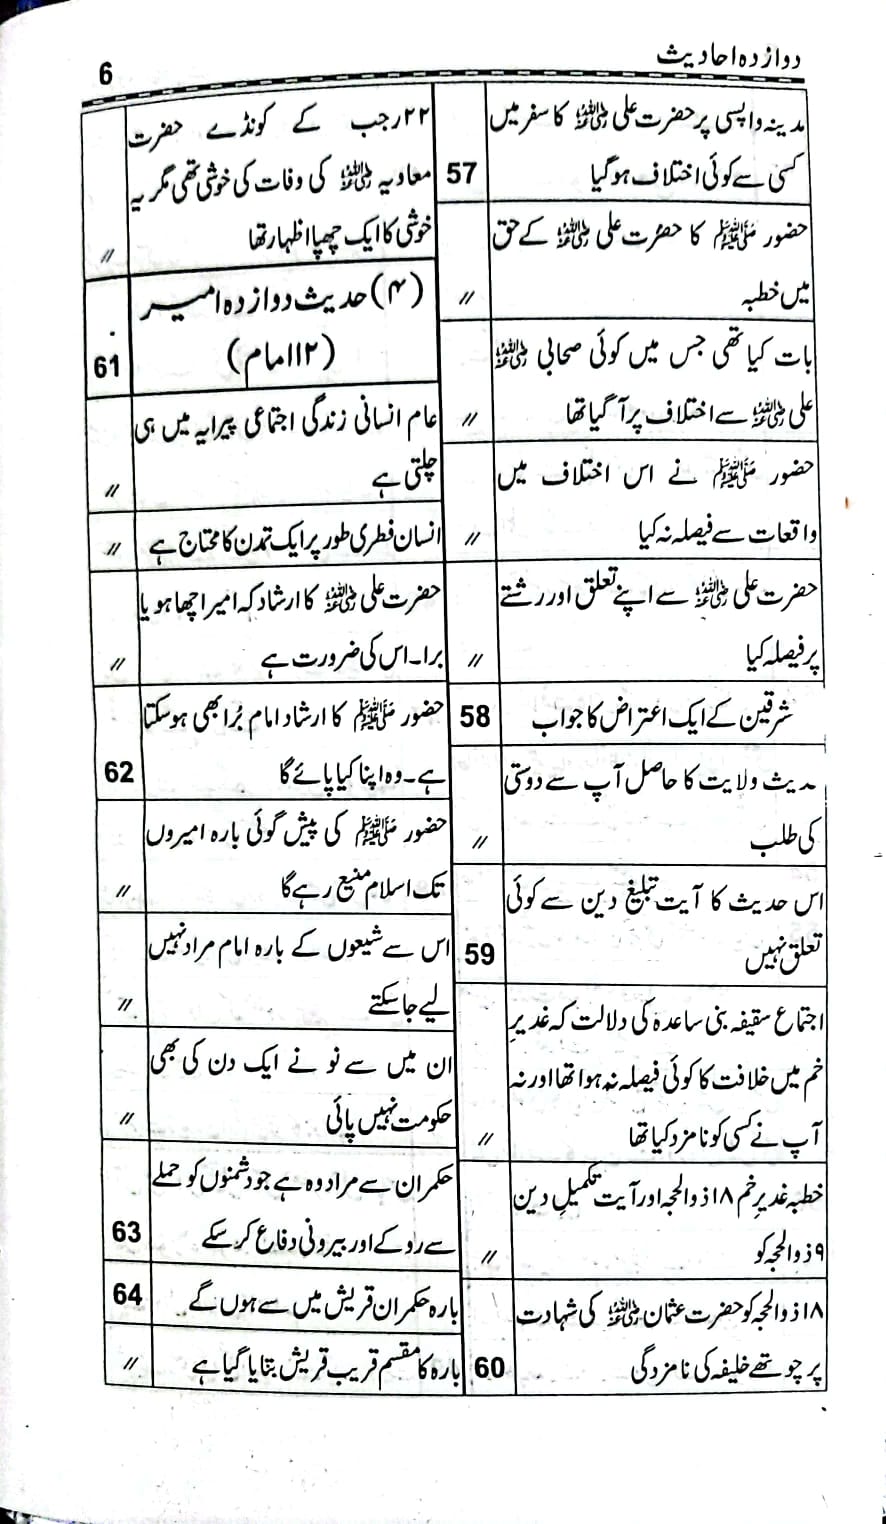 دوازدہ احادیث
6
مدینہ واپسی پر حضرت علی رضی اللہ عنہ کا سفر میں
کسی سے کوئی اختلاف ہوگیا
57
حضور صلی اللہ علیہ وسلم کا حضرت علی رضی اللہ عنہ کے حق
میں خطبہ
〃
بات کیا تھی جس میں کوئی صحابی رضی اللہ عنہ
علی رضی اللہ عنہ سے اختلاف پر آگیا تھا
〃
حضور صلی اللہ علیہ وسلم نے اس اختلاف میں
واقعات سے فیصلہ نہ کیا
〃
حضرت علی رضی اللہ عنہ سے اپنے تعلق اور رشتے
پر فیصلہ کیا
〃
شرقین کے ایک اعتراض کا جواب
58
حدیث ولایت کا حاصل آپ سے دوستی
کی طلب
〃
اس حدیث کا آیت تبلیغ دین سے کوئی
تعلق نہیں
59
اجتماع سقیفہ بنی ساعدہ کی دلالت کہ غدیرِ
خم میں خلافت کا کوئی فیصلہ نہ ہوا تھا اور نہ
آپ نے کسی کو نامزد کیا تھا
〃
خطبہ غدیرِ خم ۱۸ ذوالحجہ اور آیت تکمیلِ دین
۹ ذوالحجہ کو
〃
۱۸ ذوالحجہ کو حضرت عثمان رضی اللہ عنہ کی شہادت
پر چوتھے خلیفہ کی نامزدگی
60
۲۲ رجب کے کونڈے حضرت
معاویہ رضی اللہ عنہ کی وفات کی خوشی تھی مگر یہ
خوشی کا ایک چھپا اظہار تھا
〃
(۴) حدیث دوازدہ امیر
(۱۲ امام)
61
عام انسانی زندگی اجتماعی پیرایہ میں ہی
چلتی ہے
〃
انسان فطری طور پر ایک تمدن کا محتاج ہے
〃
حضرت علی رضی اللہ عنہ کا ارشاد کہ امیر اچھا ہو یا
برا۔ اس کی ضرورت ہے
〃
حضور صلی اللہ علیہ وسلم کا ارشاد امام بُرا بھی ہوسکتا
ہے۔ وہ اپنا کیا پائے گا
62
حضور صلی اللہ علیہ وسلم کی پیش گوئی بارہ امیروں
تک اسلام منیع رہے گا
〃
اس سے شیعوں کے بارہ امام مراد نہیں
لیے جاسکتے
〃
ان میں سے نو نے ایک دن کی بھی
حکومت نہیں پائی
〃
حکمران سے مراد وہ ہے جو دشمنوں کو حملے
سے روکے اور بیرونی دفاع کرسکے
63
بارہ حکمران قریش میں سے ہوں گے
64
بارہ کا مقسم قریب قریش بتایا گیا ہے
〃